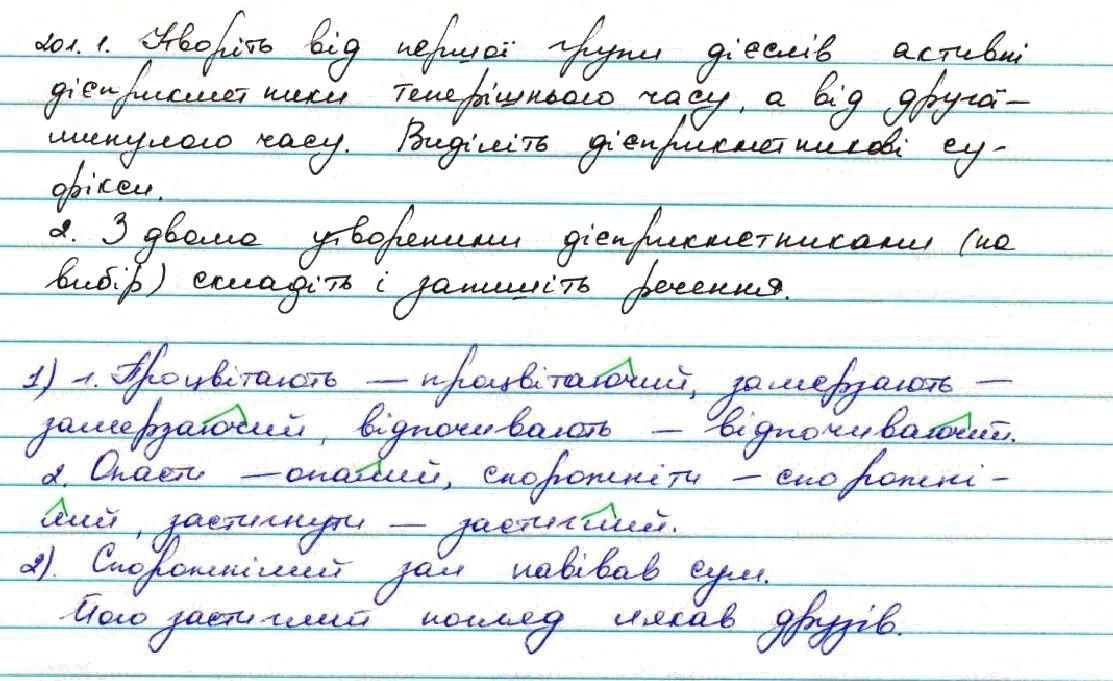 201. 1. Утворіть від першої групи дієслів активні
дієприкметники теперішнього часу, а від другої –
минулого часу. Виділіть дієприкметникові су-
фікси.
2. З двома утвореними дієприкметниками (на
вибір) складіть і запишіть речення.
1) 1. Процвітають – процвітаючий, замерзають –
замерзаючий, відпочивають – відпочиваючий.
2. Опасти – опалий, спорожніти – спорожні-
лий, застигнути – застиглий.
2). Спорожнілий зал навівав сум.
Його застиглий погляд лякав друзів.